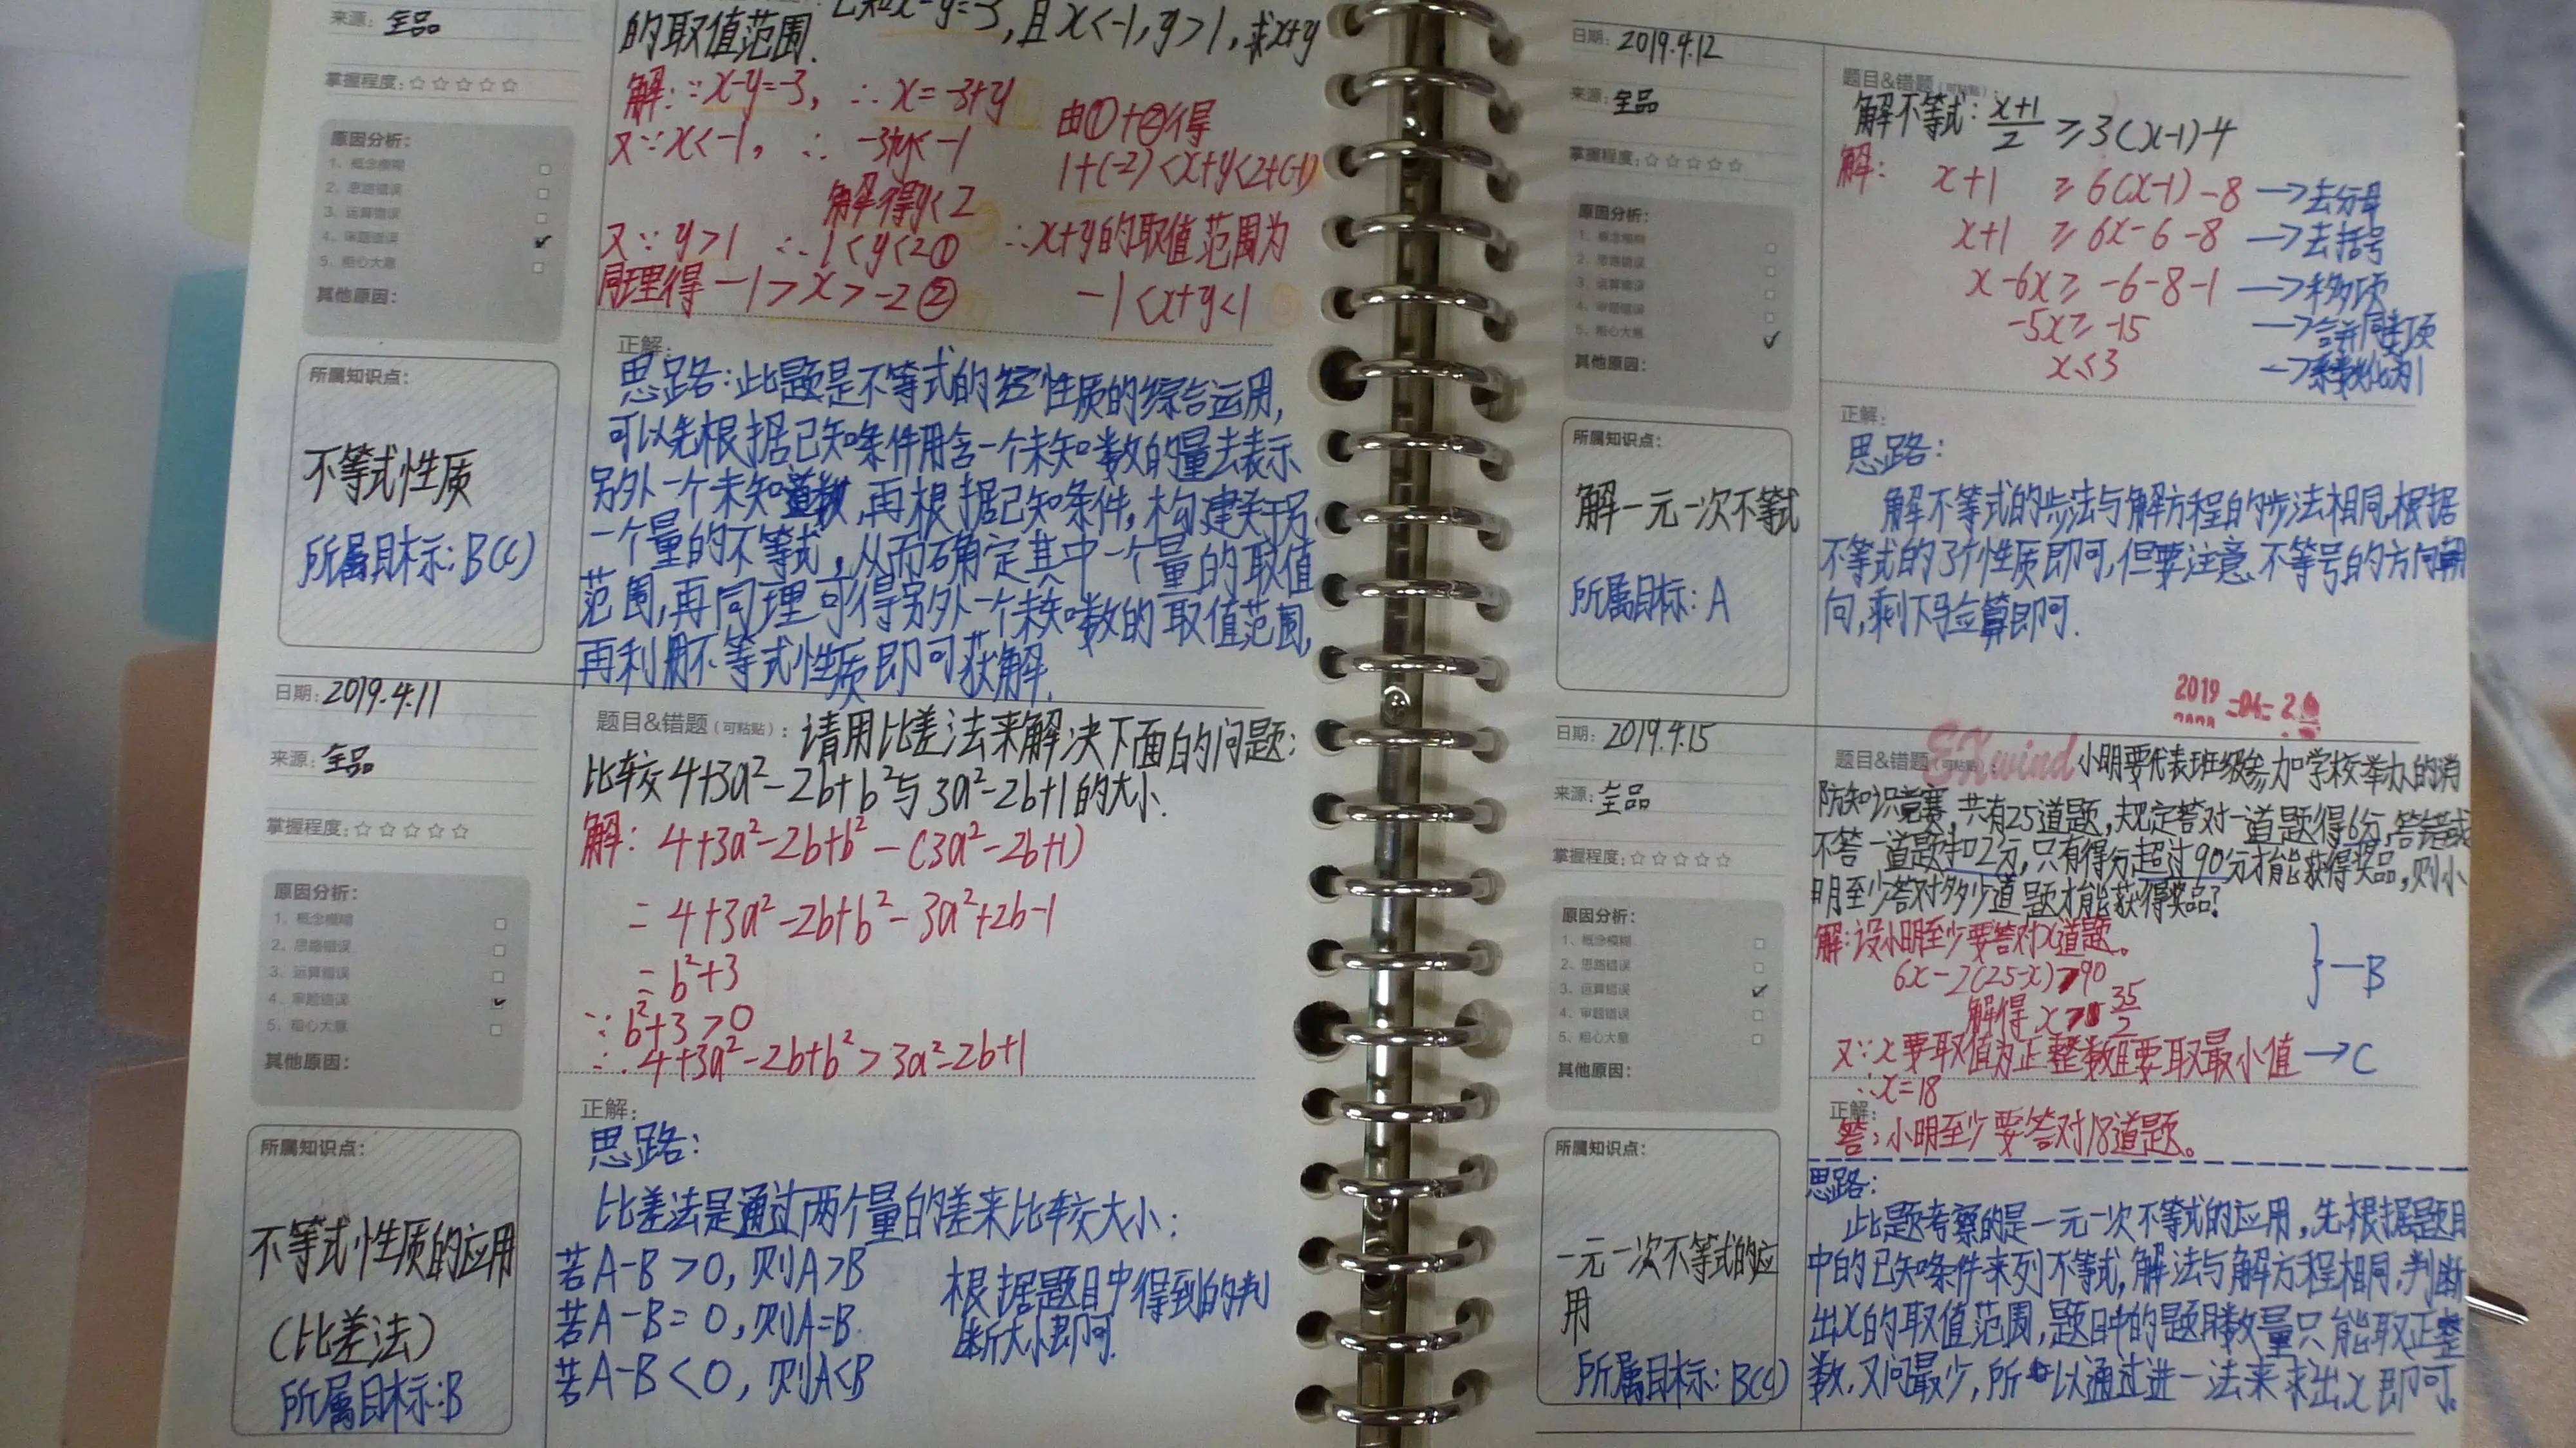 来源：全品
已知x-y=-3，且x<-1，y>1，求x+y
的取值范围.
掌握程度：☆☆☆☆☆
原因分析：
1、概念模糊
2、思路错误
3、运算错误
4、审题错误 ✓
5、粗心大意
其他原因：
解：∵x-y=-3，∴x=-3+y
又∵x<-1，∴-3+y<-1
解得y<2
又∵y>1 ∴1<y<2①
同理得-1>x>-2②
由①+②得
1+(-2)<x+y<2+(-1)
∴x+y的取值范围为
-1<x+y<1
所属知识点：
不等式性质
所属目标：B(C)
正解：
思路：此题是不等式的性质的综合运用，
可以先根据已知条件用含一个未知数的量去表示
另外一个未知数，再根据已知条件，构建关于另
一个量的不等式，从而确定其中一个量的取值
范围，再同理可得另外一个未知数的取值范围，
再利用不等式性质即可获解.
日期：2019.4.11
来源：全品
掌握程度：☆☆☆☆☆
原因分析：
1、概念模糊
2、思路错误
3、运算错误
4、审题错误 ✓
5、粗心大意
其他原因：
题目&错题（可粘贴）：请用比差法来解决下面的问题：
比较4+3a²-2b+b²与3a²-2b+1的大小.
解：4+3a²-2b+b²-(3a²-2b+1)
=4+3a²-2b+b²-3a²+2b-1
=b²+3
∵b²+3>0
∴4+3a²-2b+b²>3a²-2b+1
所属知识点：
不等式性质的应用
（比差法）
所属目标：B
正解：
思路：
比差法是通过两个量的差来比较大小：
若A-B>0，则A>B
若A-B=0，则A=B.
若A-B<0，则A<B
根据题目中得到的判
断大小即可.
日期：2019.4.12
来源：全品
掌握程度：☆☆☆☆☆
原因分析：
1、概念模糊
2、思路错误
3、运算错误
4、审题错误
5、粗心大意 ✓
其他原因：
题目&错题（可粘贴）：
解不等式：(x+1)/2≥3(x-1)-4
解：x+1 ≥6(x-1)-8 →去分母
x+1 ≥6x-6-8 →去括号
x-6x≥-6-8-1 →移项
-5x≥-15 →合并同类项
x≤3 →系数化为1
所属知识点：
解一元一次不等式
所属目标：A
正解：
思路：
解不等式的步法与解方程的步法相同，根据
不等式的3个性质即可，但要注意不等号的方向朝
向，剩下验算即可.
2019
日期：2019.4.15
来源：全品
掌握程度：☆☆☆☆☆
原因分析：
1、概念模糊
2、思路错误
3、运算错误 ✓
4、审题错误
5、粗心大意
其他原因：
题目&错题（可粘贴）：小明要代表班级参加学校举办的消
防知识竞赛，共有25道题，规定答对一道题得6分，答错或
不答一道题扣2分，只有得分超过90分才能获得奖品，则小
明至少答对多少道题才能获得奖品？
EXwind
解：设小明至少要答对x道题。
6x-2(25-x)>90
解得x>35/2
}—B
又∵x要取值为正整数且要取最小值→C
∴x=18
正解：
答：小明至少要答对18道题。
所属知识点：
一元一次不等式的应
用
所属目标：B(C)
思路：
此题考察的是一元一次不等式的应用，先根据题目
中的已知条件来列不等式，解法与解方程相同，判断
出x的取值范围，题目中的题目数量只能取正整
数，又问最少，所以通过进一法来求出x即可。